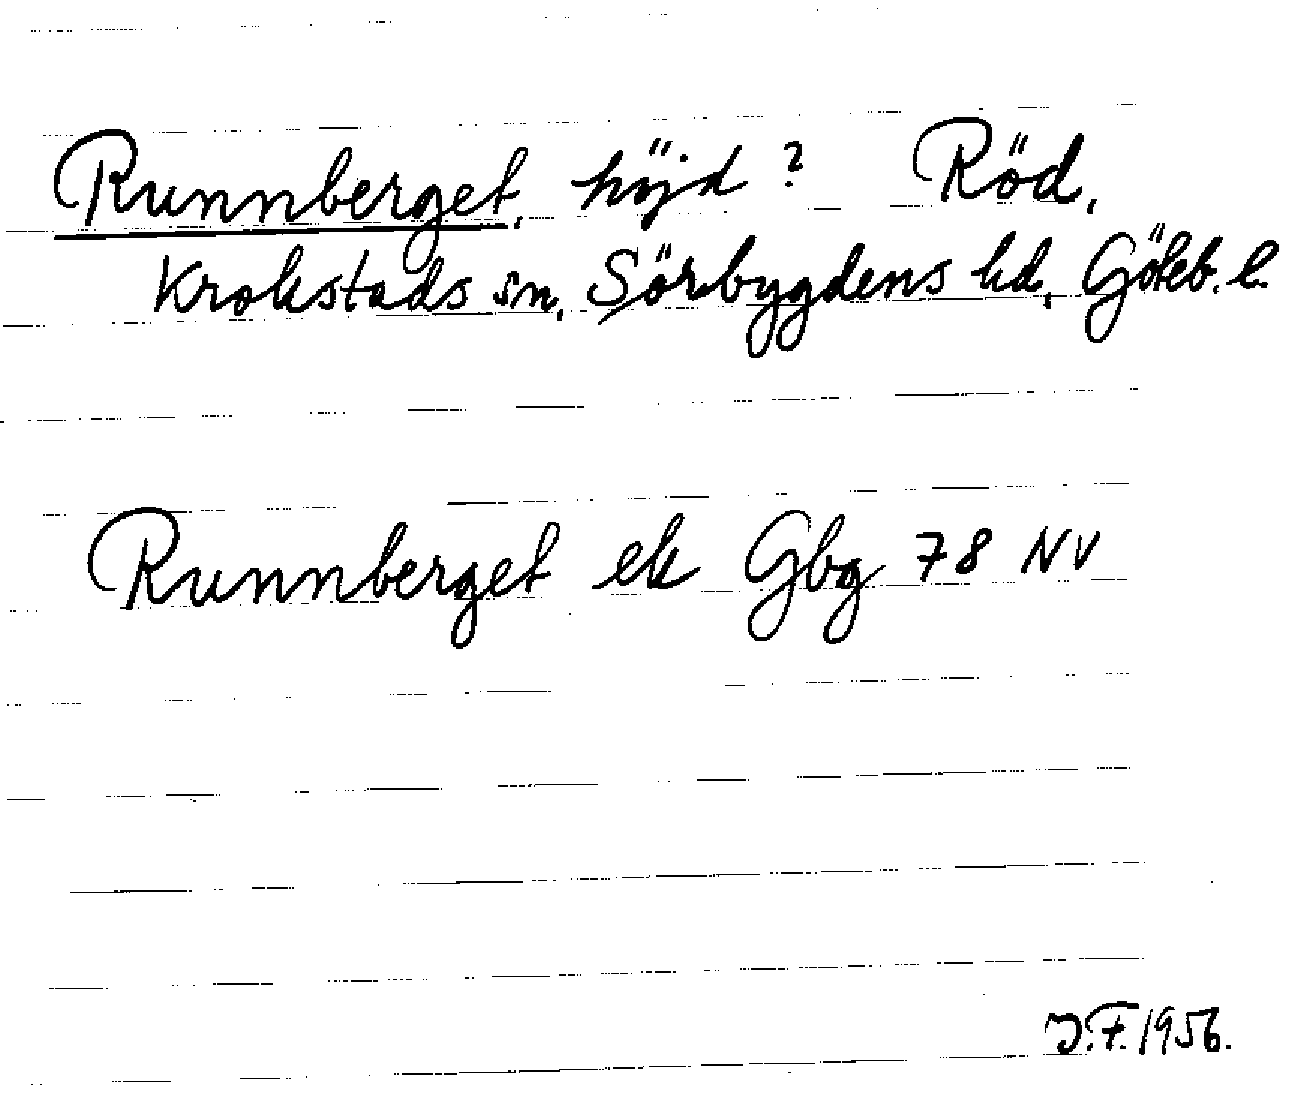 Runnberget, höjd? Röd,
Krokstads sn, Sörbygdens hd, Göteb. l.
Runnberget ek Gbg 78 NV
J.F. 1956.